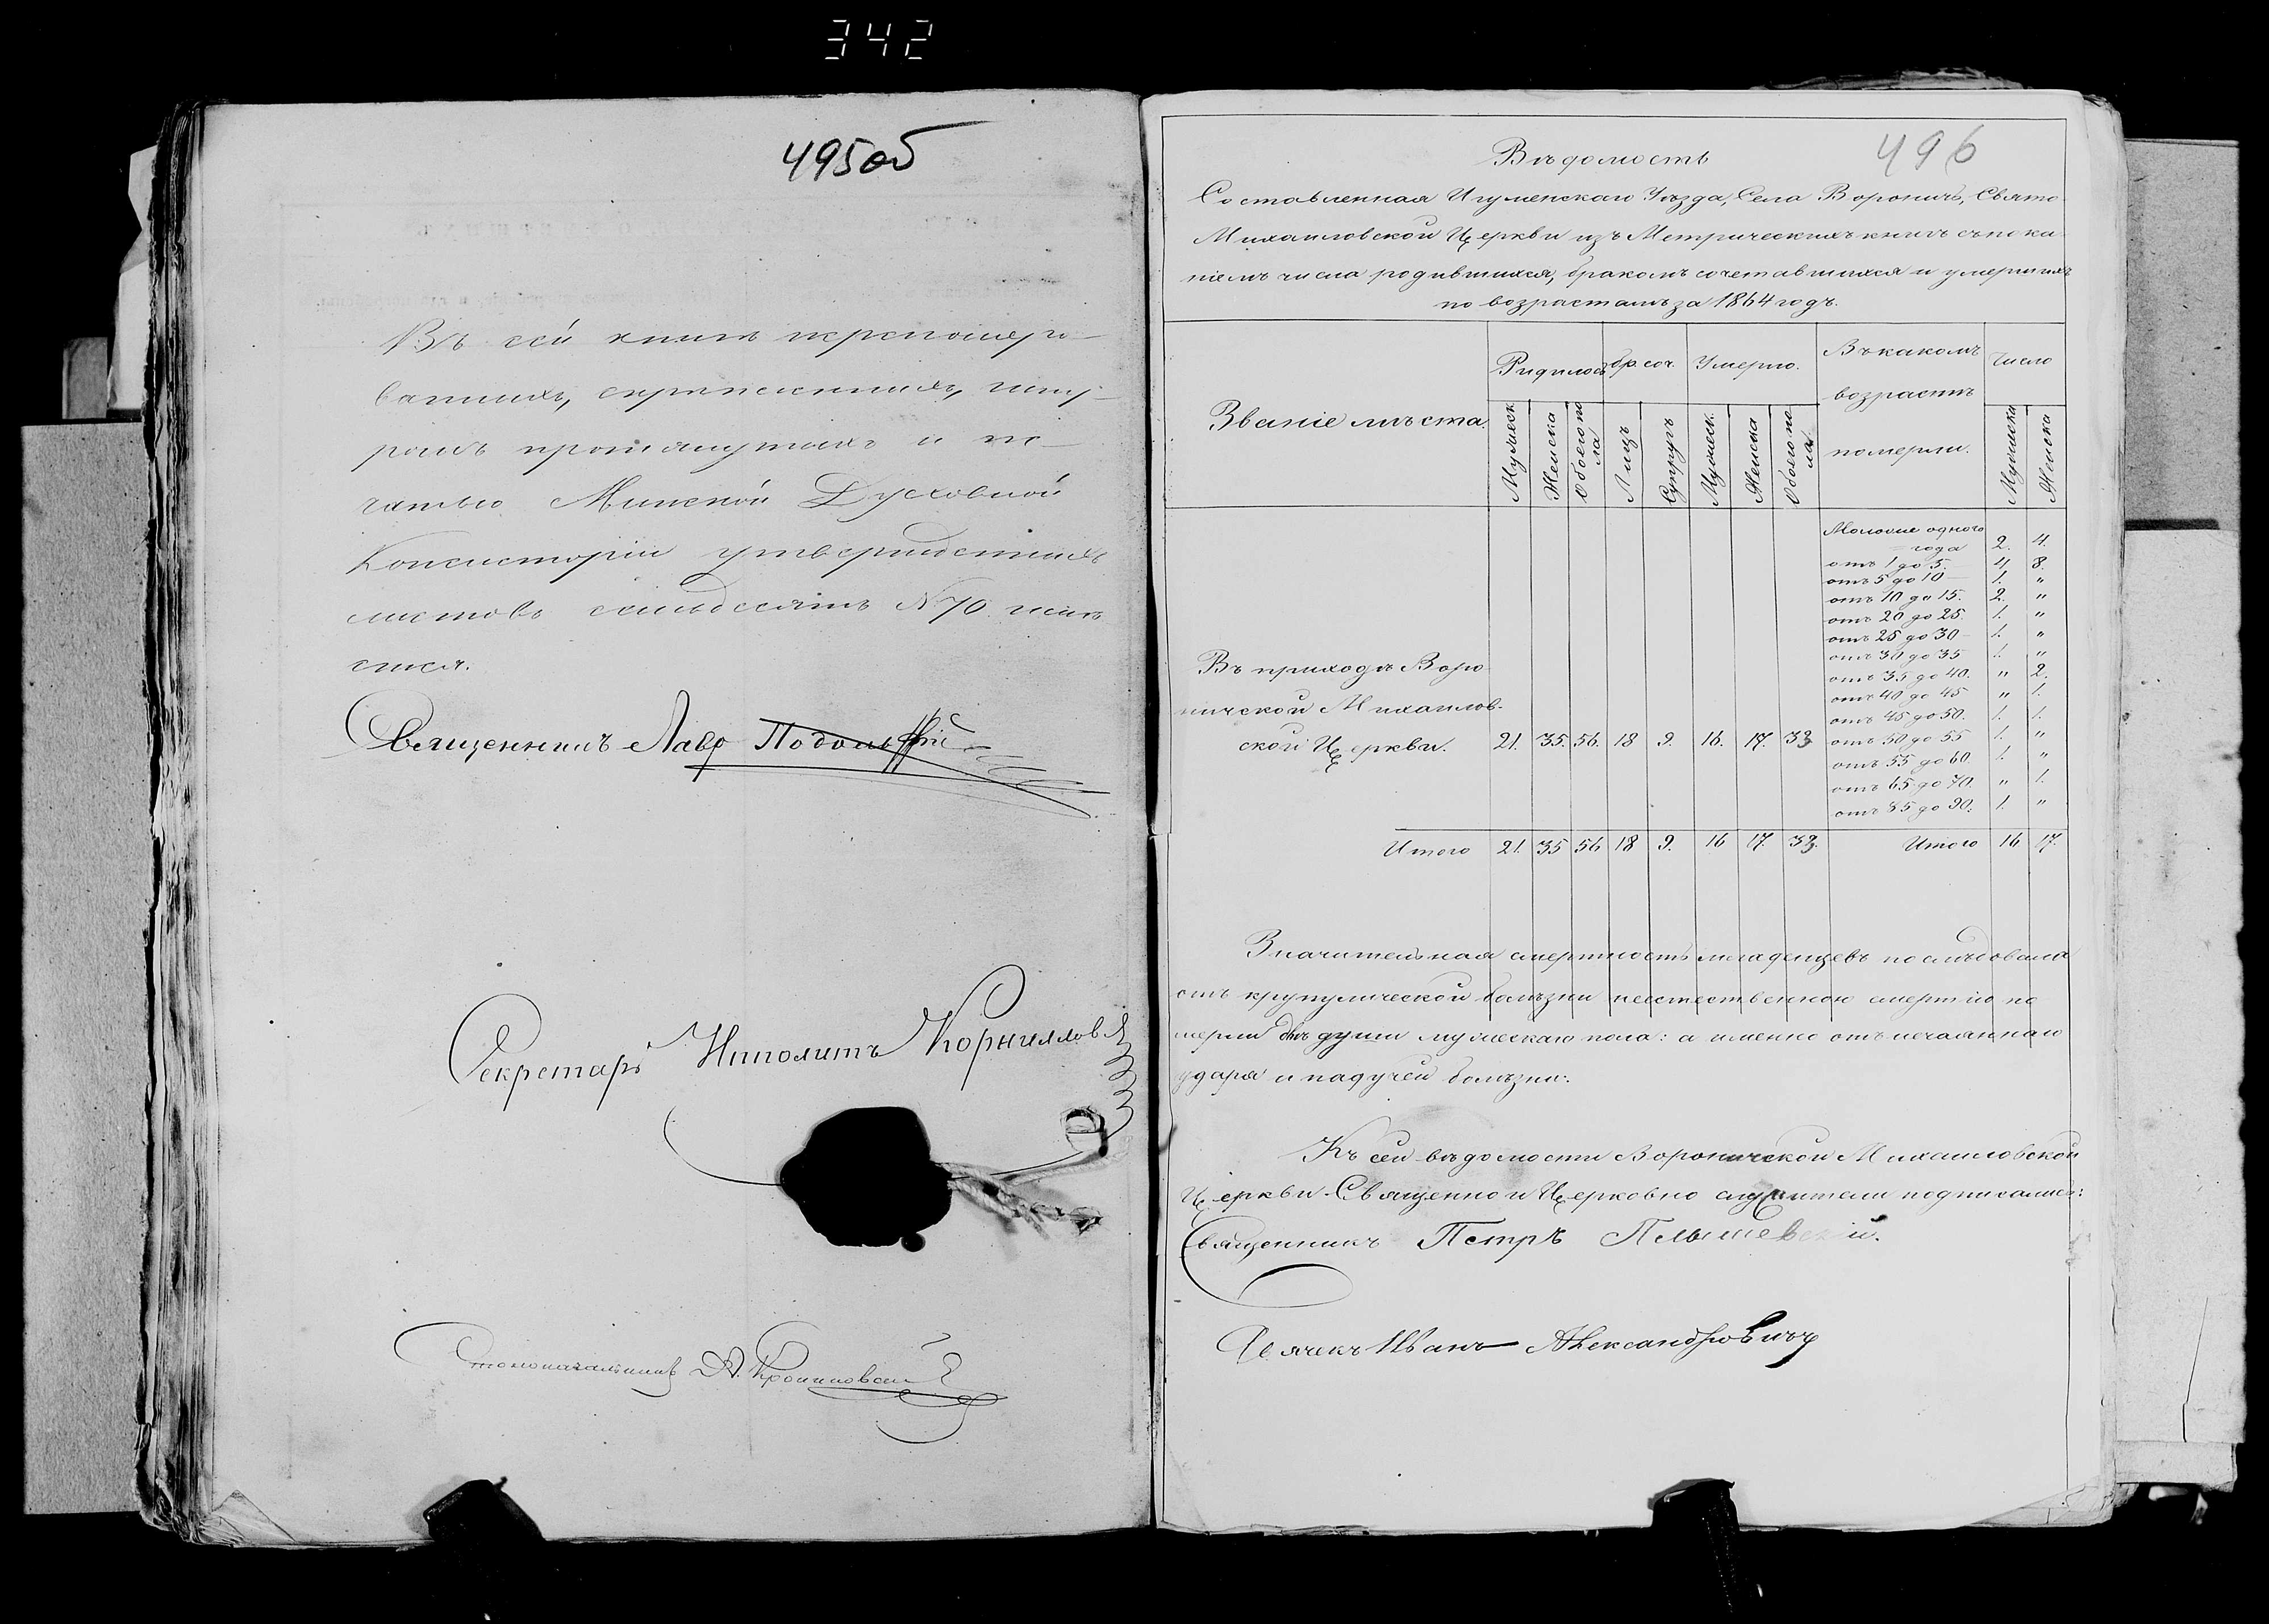 342
495об
Въ сей книгѣ перенумеро-
ванныхъ, скрѣпленныхъ, шну-
ромъ протянутыхъ и пе-
чатью Минской Духовной
Консисторіи утвержденныхъ
листовъ семьдесятъ № 70. числ
ится.
Священникъ Лавр
Секретарь Ипполитъ Корниловъ
Столоначальникъ А.
496
Вѣдомость
Составленная Игуменскаго Уѣзда, Села Вороничь, Свято
Михайловской Церкви изъ Метрическихъ книгъ съ пока
ніемъ числа родившихся, бракомъ сочетавшихся и умершихъ
по возрастамъ за 1864 годъ.
Званіе мѣста. Родилось бр. соч. Умерло. Въ какомъ возрастѣ померли. Число
Мужеск Женска Обоего по ла Лицъ Супруг Мужеск. Женска Обоего по ла Мужеска Женска
Моложе одного
года 2. 4.
отъ 1 до 5. 4 8.
отъ 5 до 10 1. "
отъ 10 до 15. 2. "
отъ 20 до 25. 1. "
отъ 25 до 30 1. "
отъ 30 до 35 1. "
отъ 35 до 40. " 2.
отъ 40 до 45 " 1.
отъ 45 до 50. 1. 1.
отъ 50 до 55 1. "
отъ 55 до 60. 1. "
отъ 65 до 70. " 1.
отъ 85 до 90. 1. "
Въ приходѣ Воро
нической Михайлов-
ской Церкви. 21. 35. 56. 18 9. 16. 17. 33
Итого 21. 35 56 18 9. 16 17. 33. Итого 16 17.
Значительная смертность младенцевъ послѣдовала
отъ крупулической болѣзни неестественною смертію по
мерли двѣ души мужескаго пола: а именно отъ нечаяннаго
удара и падучей болѣзни.
Къ сей вѣдомости Воронической Михайловской
Церкви Священно и Церковно служители подписались:
Священникъ Петръ
Дьячекъ Иванъ Александровичъ